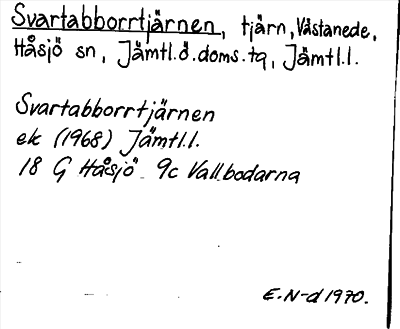 Svartabborrtjärnen, tjärn, Västanede,
Håsjö sn, Jämtl.ö.doms.tq, Jämtl.l.
Svartabborrtjärnen
ek (1968) Jämtl.l.
18 G Håsjö - 9c Vallbodarna
E.N-d 1970.